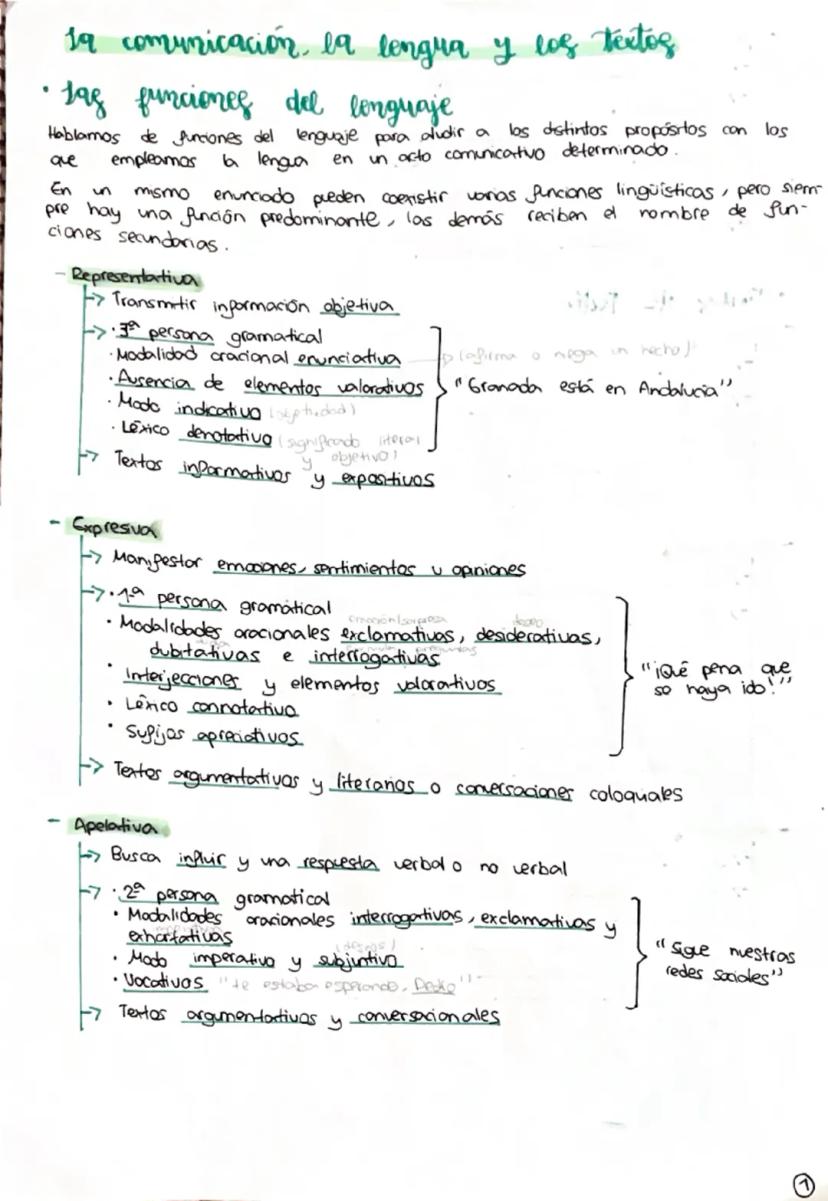 La comunicación, la lengua y los textos
· Las funciones del lenguaje
Hablamos de funciones del lenguaje para aludir a los distintos propósitos con los
que empleamos la lengua en un acto comunicativo determinado.
En un mismo enunciado pueden coexistir varias funciones lingüísticas, pero siem-
pre hay una función predominante, las demás reciben el nombre de fun-
ciones secundarias.
- Representativa
→ Transmitir información objetiva
→ · 3ª persona gramatical
· Modalidad oracional enunciativa → (afirma o niega un hecho)
· Ausencia de elementos valorativos "Granada está en Andalucía"
· Modo indicativo (objetividad)
· Léxico denotativo (significado literal
y objetivo)
→ Textos informativos y expositivos
- Expresiva
→ Manifestar emociones, sentimientos u opiniones
→ · 1ª persona gramatical
emoción/sorpresa deseo
· Modalidades oracionales exclamativas, desiderativas,
duda preguntas
dubitativas e interrogativas
· Interjecciones y elementos valorativos
"¡Qué pena que
so haya ido!"
· Léxico connotativo
· Sufijos apreciativos
→ Textos argumentativos y literarios o conversaciones coloquiales
- Apelativa
→ Busca influir y una respuesta verbal o no verbal
→ · 2ª persona gramatical
· Modalidades oracionales interrogativas, exclamativas y
exhortativas
(deseos)
· Modo imperativo y subjuntivo
"Sigue nuestras
redes sociales"
· Vocativos "te estaba esperando,
→ Textos argumentativos y conversacionales
1